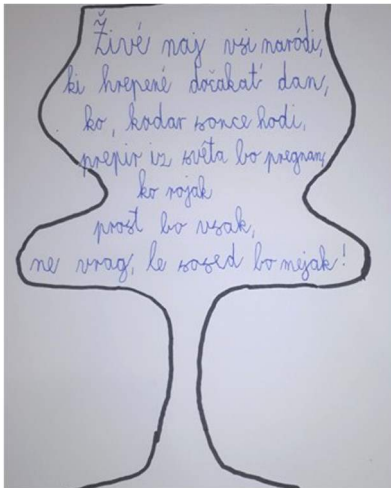 Živé naj vsi naródi,
ki hrepené dočakat' dan,
ko, kodar sonce hodi,
prepir iz svéta bo pregnan,
ko rojak
prost bo vsak,
ne vrag, le sosed bo mejak!